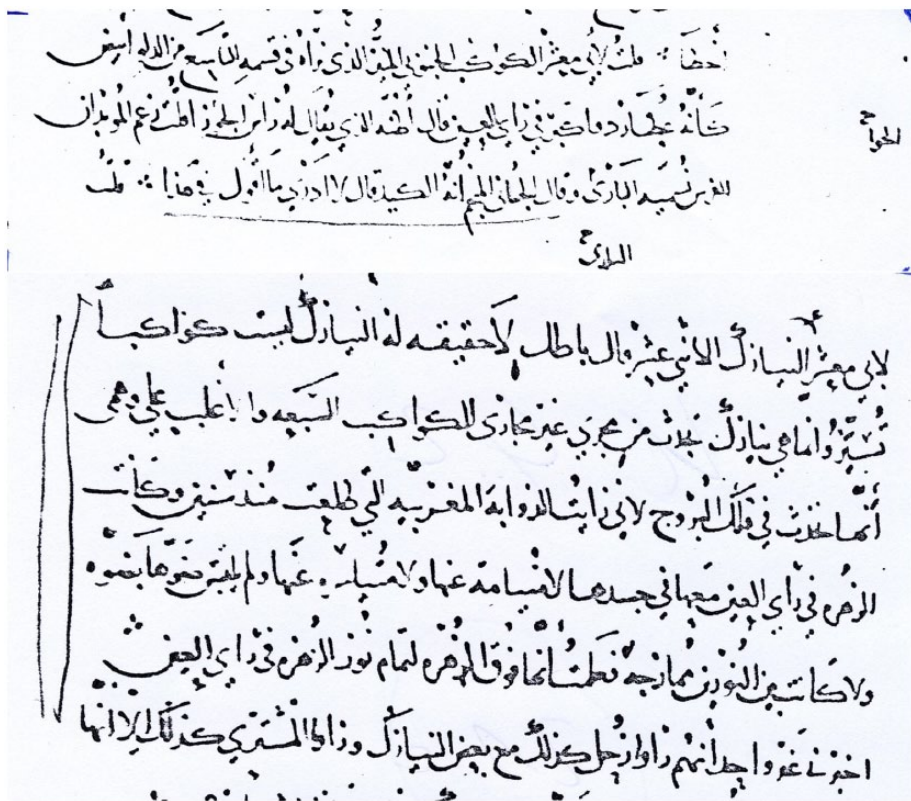 أخطأ ∴ قلت لأبي معشر الكوكب الجنوبي المنير الذي نراه في قسمه التاسع من الدلو أبيض
كأنه عطارد وما كبر في رأي العين قال أظنه الذي يقال له رأس الجوزاء قلت زعم الموبذان
الفرس تسميه البازي وقال الجماني المنجم أنه الكيد قال لا أدري ما أقول في هذا ∴ قلت
لأبي معشر النيازك الاثني عشر قال باطل لا حقيقة له النيازك ليست كواكباً
تسير وإنما هي نيازك تحدث من مجرى غير مجارى الكواكب السبعه والاغلب على وهمى
أنها تحدث في فلك البروج لأني رأيت الذوابه المغربيه التي طلعت منذ سنين وكانت
الزهره في رأي العين معها في جسدها لا متيامنة عنها ولا متياسره عنها ولم يتغير ضوءها بضوءه
ولا كانت بين النورين ممازجه فعلمت أنها فوق الزهره لتمام نور الزهره في رأي العين
اخبرني غير واحد أنهم رأوا زحل كذلك مع بعض النيازك ورأوا المشتري كذلك إلا أنها